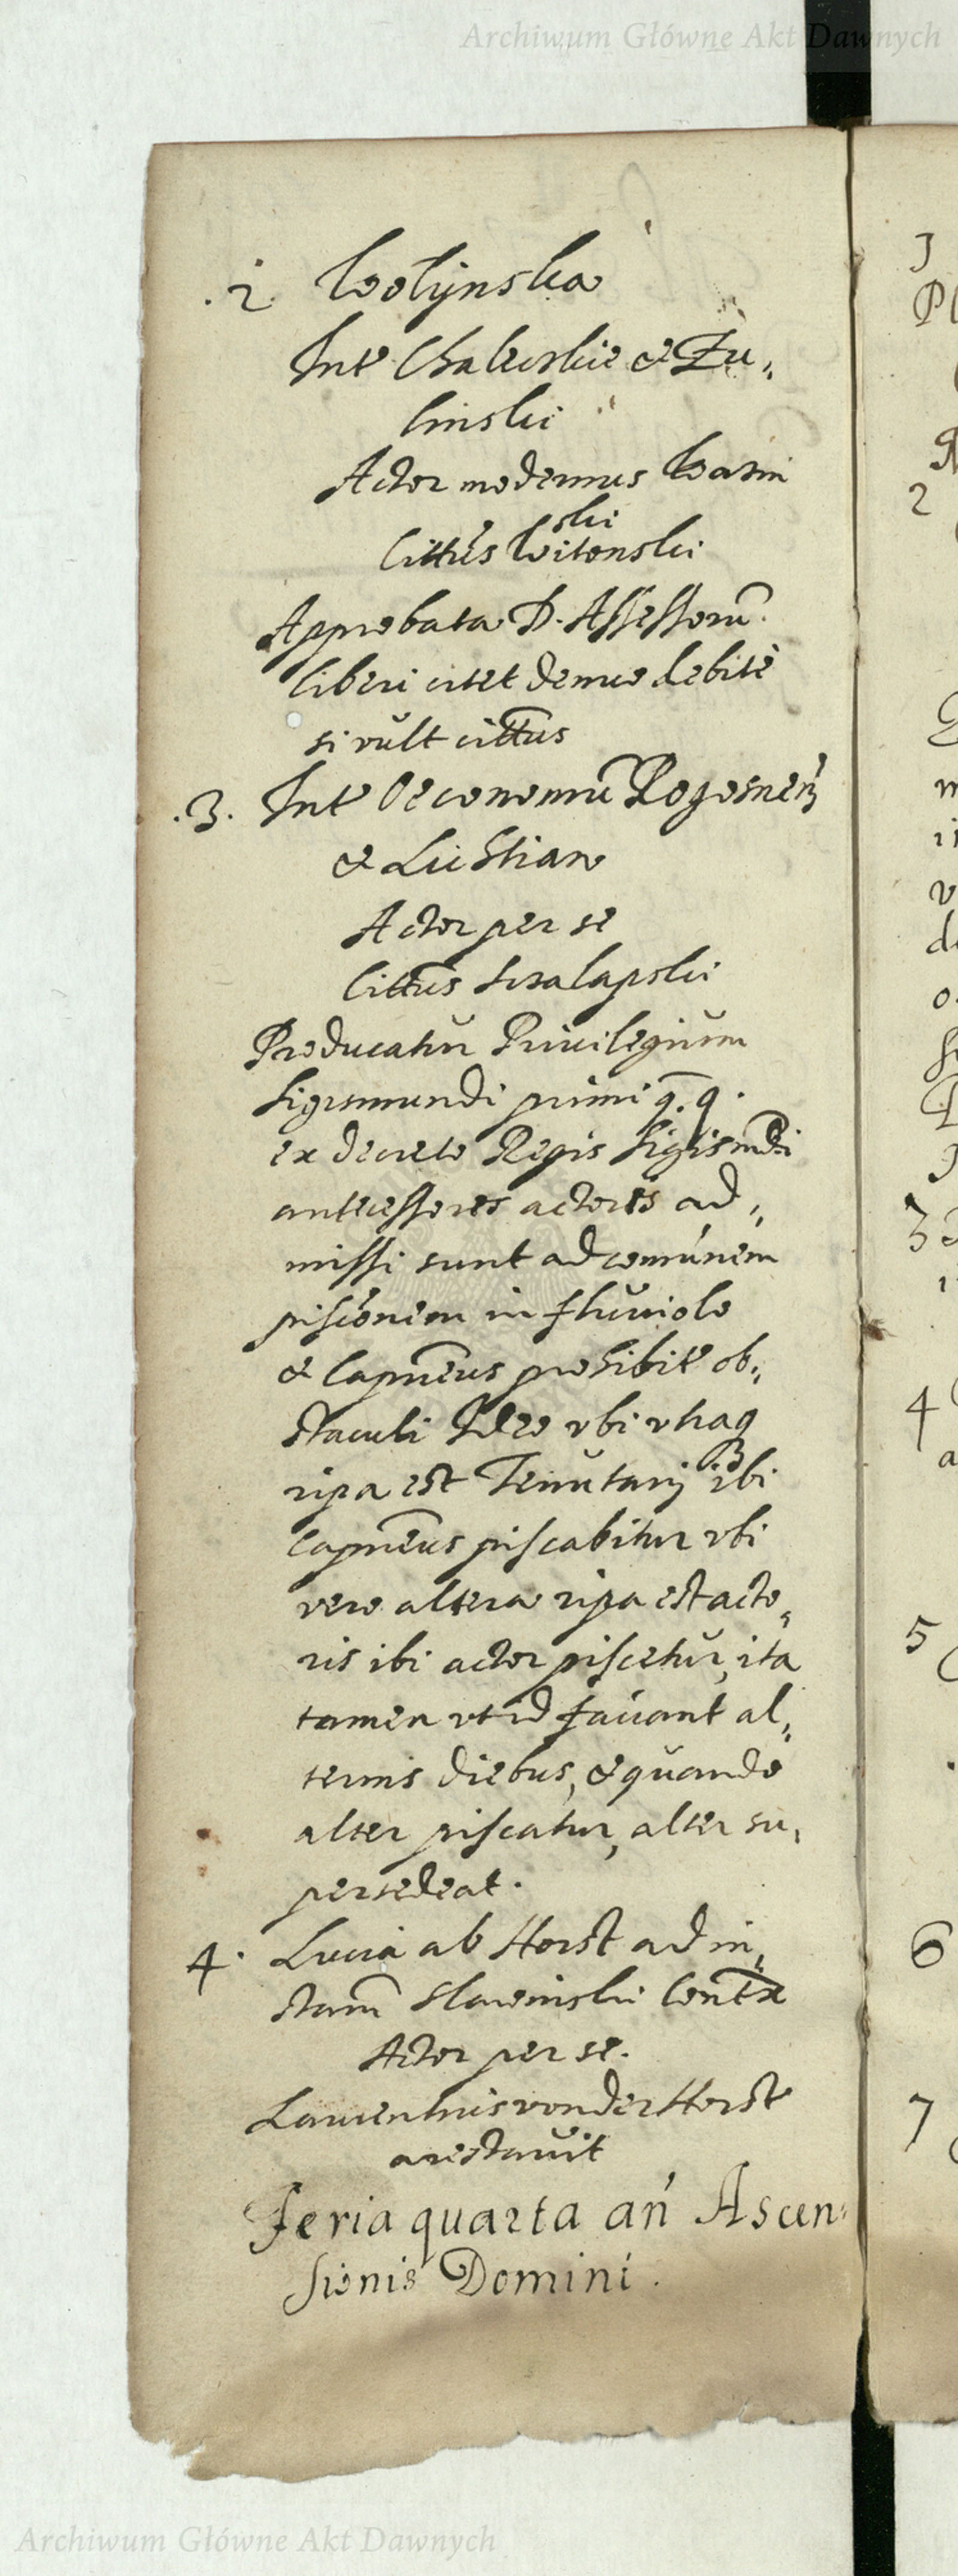 Archiwum Główne Akt Dawnych
.2. Wolijnska
Int Chaleckie & Zu,,
linski
Actor modernus Warsin
ski
Cittus Witonski
Approbata D. Assessorū.
liberi citet denuo debite
si vult cittus
.3. Int Oeconomū Rogosnen
& Lustian
Actor per se
Cittus Scralapski
Producatur Privilegium
Sigismundi primi q. q.
ex decreto Regis Sigismdi
antecessores actoris ad,,
missi sunt ad comunem
piscónem in fluviolo
& Capneus prohibit ob,,
staculi Ideo vbi vtraq
ripa est Tenutarij ibi
Capneus piscabitur vbi
vero altera ripa est acto,,
ris ibi actor piscetur, ita
tamen vt id faciant al,,
ternis diebus, & quando
alter piscatur, alter su,,
persedeat.
4. Lucia ab Horst ad in,,
stam Slawinski
Actor per se.
Laurentius von der Horst
arestavit
Feria quarta an Ascen
sionis Domini.
3
2
3
4
5
6
7
Archiwum Główne Akt Dawnych